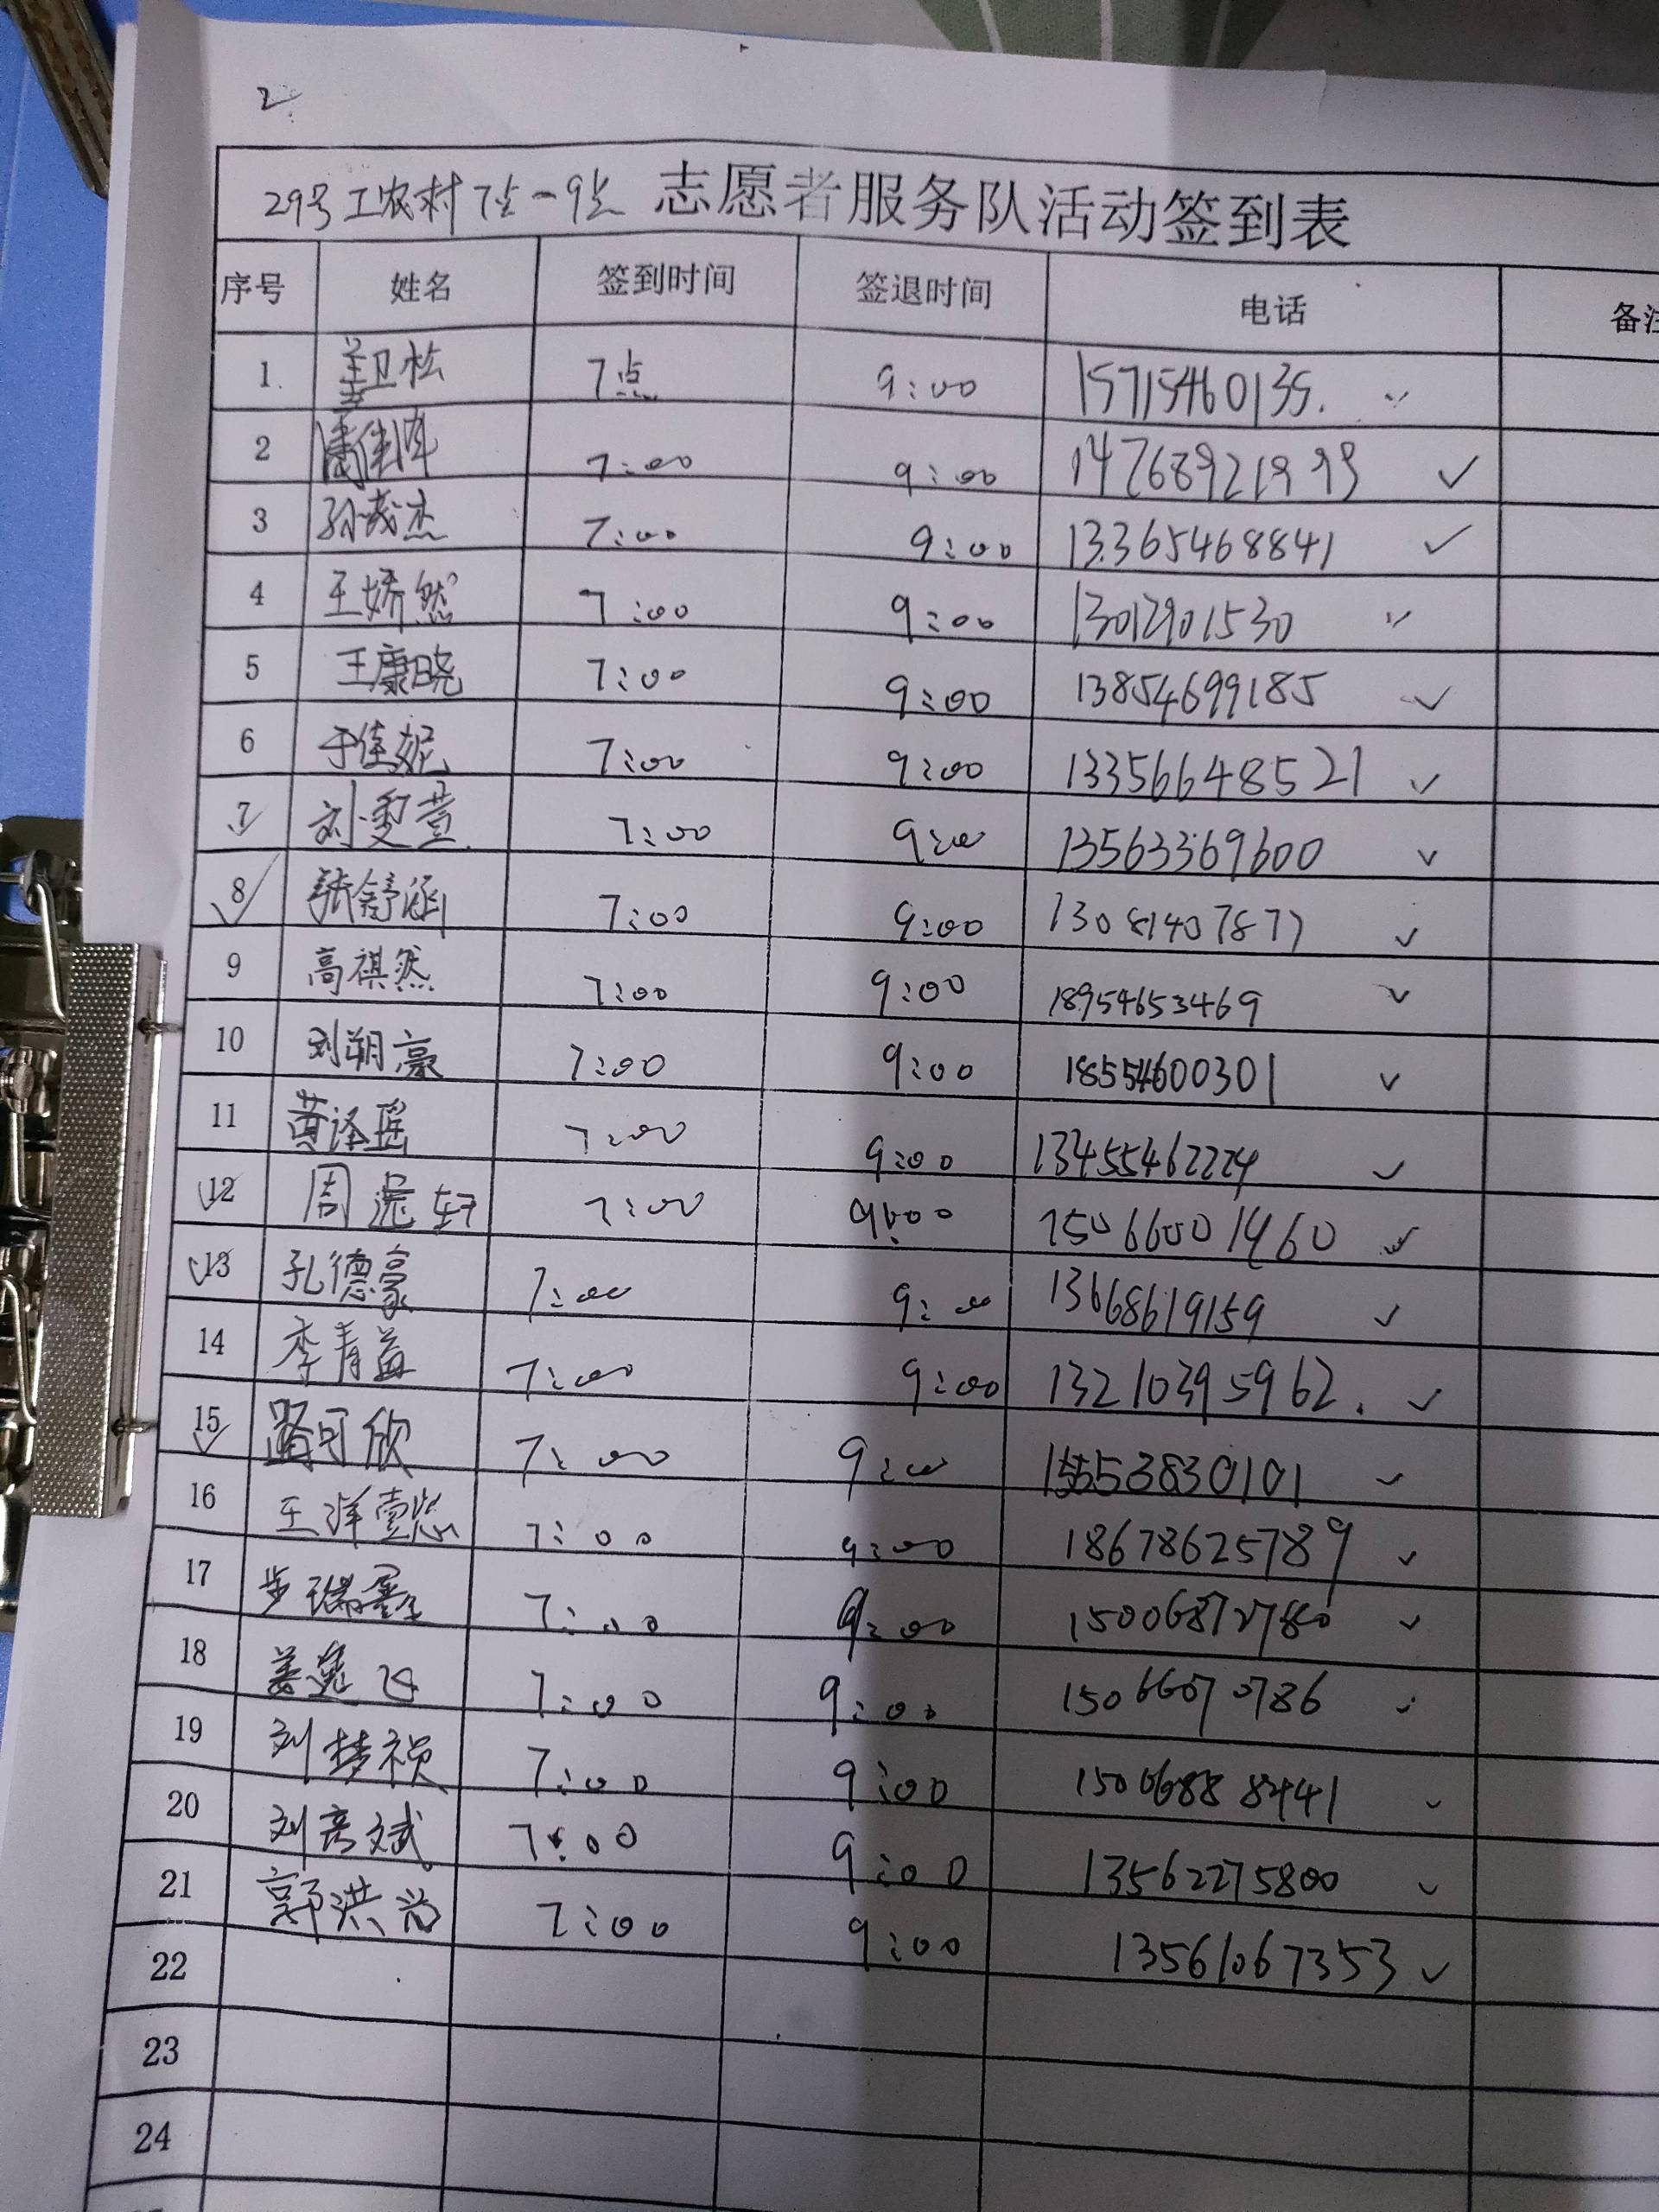 2
29号工农村7点-9点 志愿者服务队活动签到表
序号 姓名 签到时间 签退时间 电话 备注
1 卫松 7点 9:00 15715460135.
2 7:00 9:00
3 孙茂杰 7:00 9:00 13365468841
4 王娇然 7:00 9:00 13012901530
5 王康晓 7:00 9:00 13854699185
6 于佳妮 7:00 9:00 13356648521
7 刘雯萱 7:00 9:00 13563369600
8 张舒涵 7:00 9:00 13081407877
9 高祺然 7:00 9:00 18954653469
10 刘朔豪 7:00 9:00 18554600301
11 黄泽瑶 7:00 9:00 13455462224
12 周 7:00 9:00 15066001460
13 孔德豪 7:00 9:00 13668619159
14 李青益 7:00 9:00 13210395962.
15 路可欣 7:00 9:00
16 王 7:00 9:00 18678625789
17 步瑞鑫 7:00 9:00
18 姜逸飞 7:00 9:00 15066070786
19 刘梦祯 7:00 9:00 15006888441
20 刘彦斌 7:00 9:00 13562275800
21 郭洪 7:00 9:00 13561067353
22
23
24